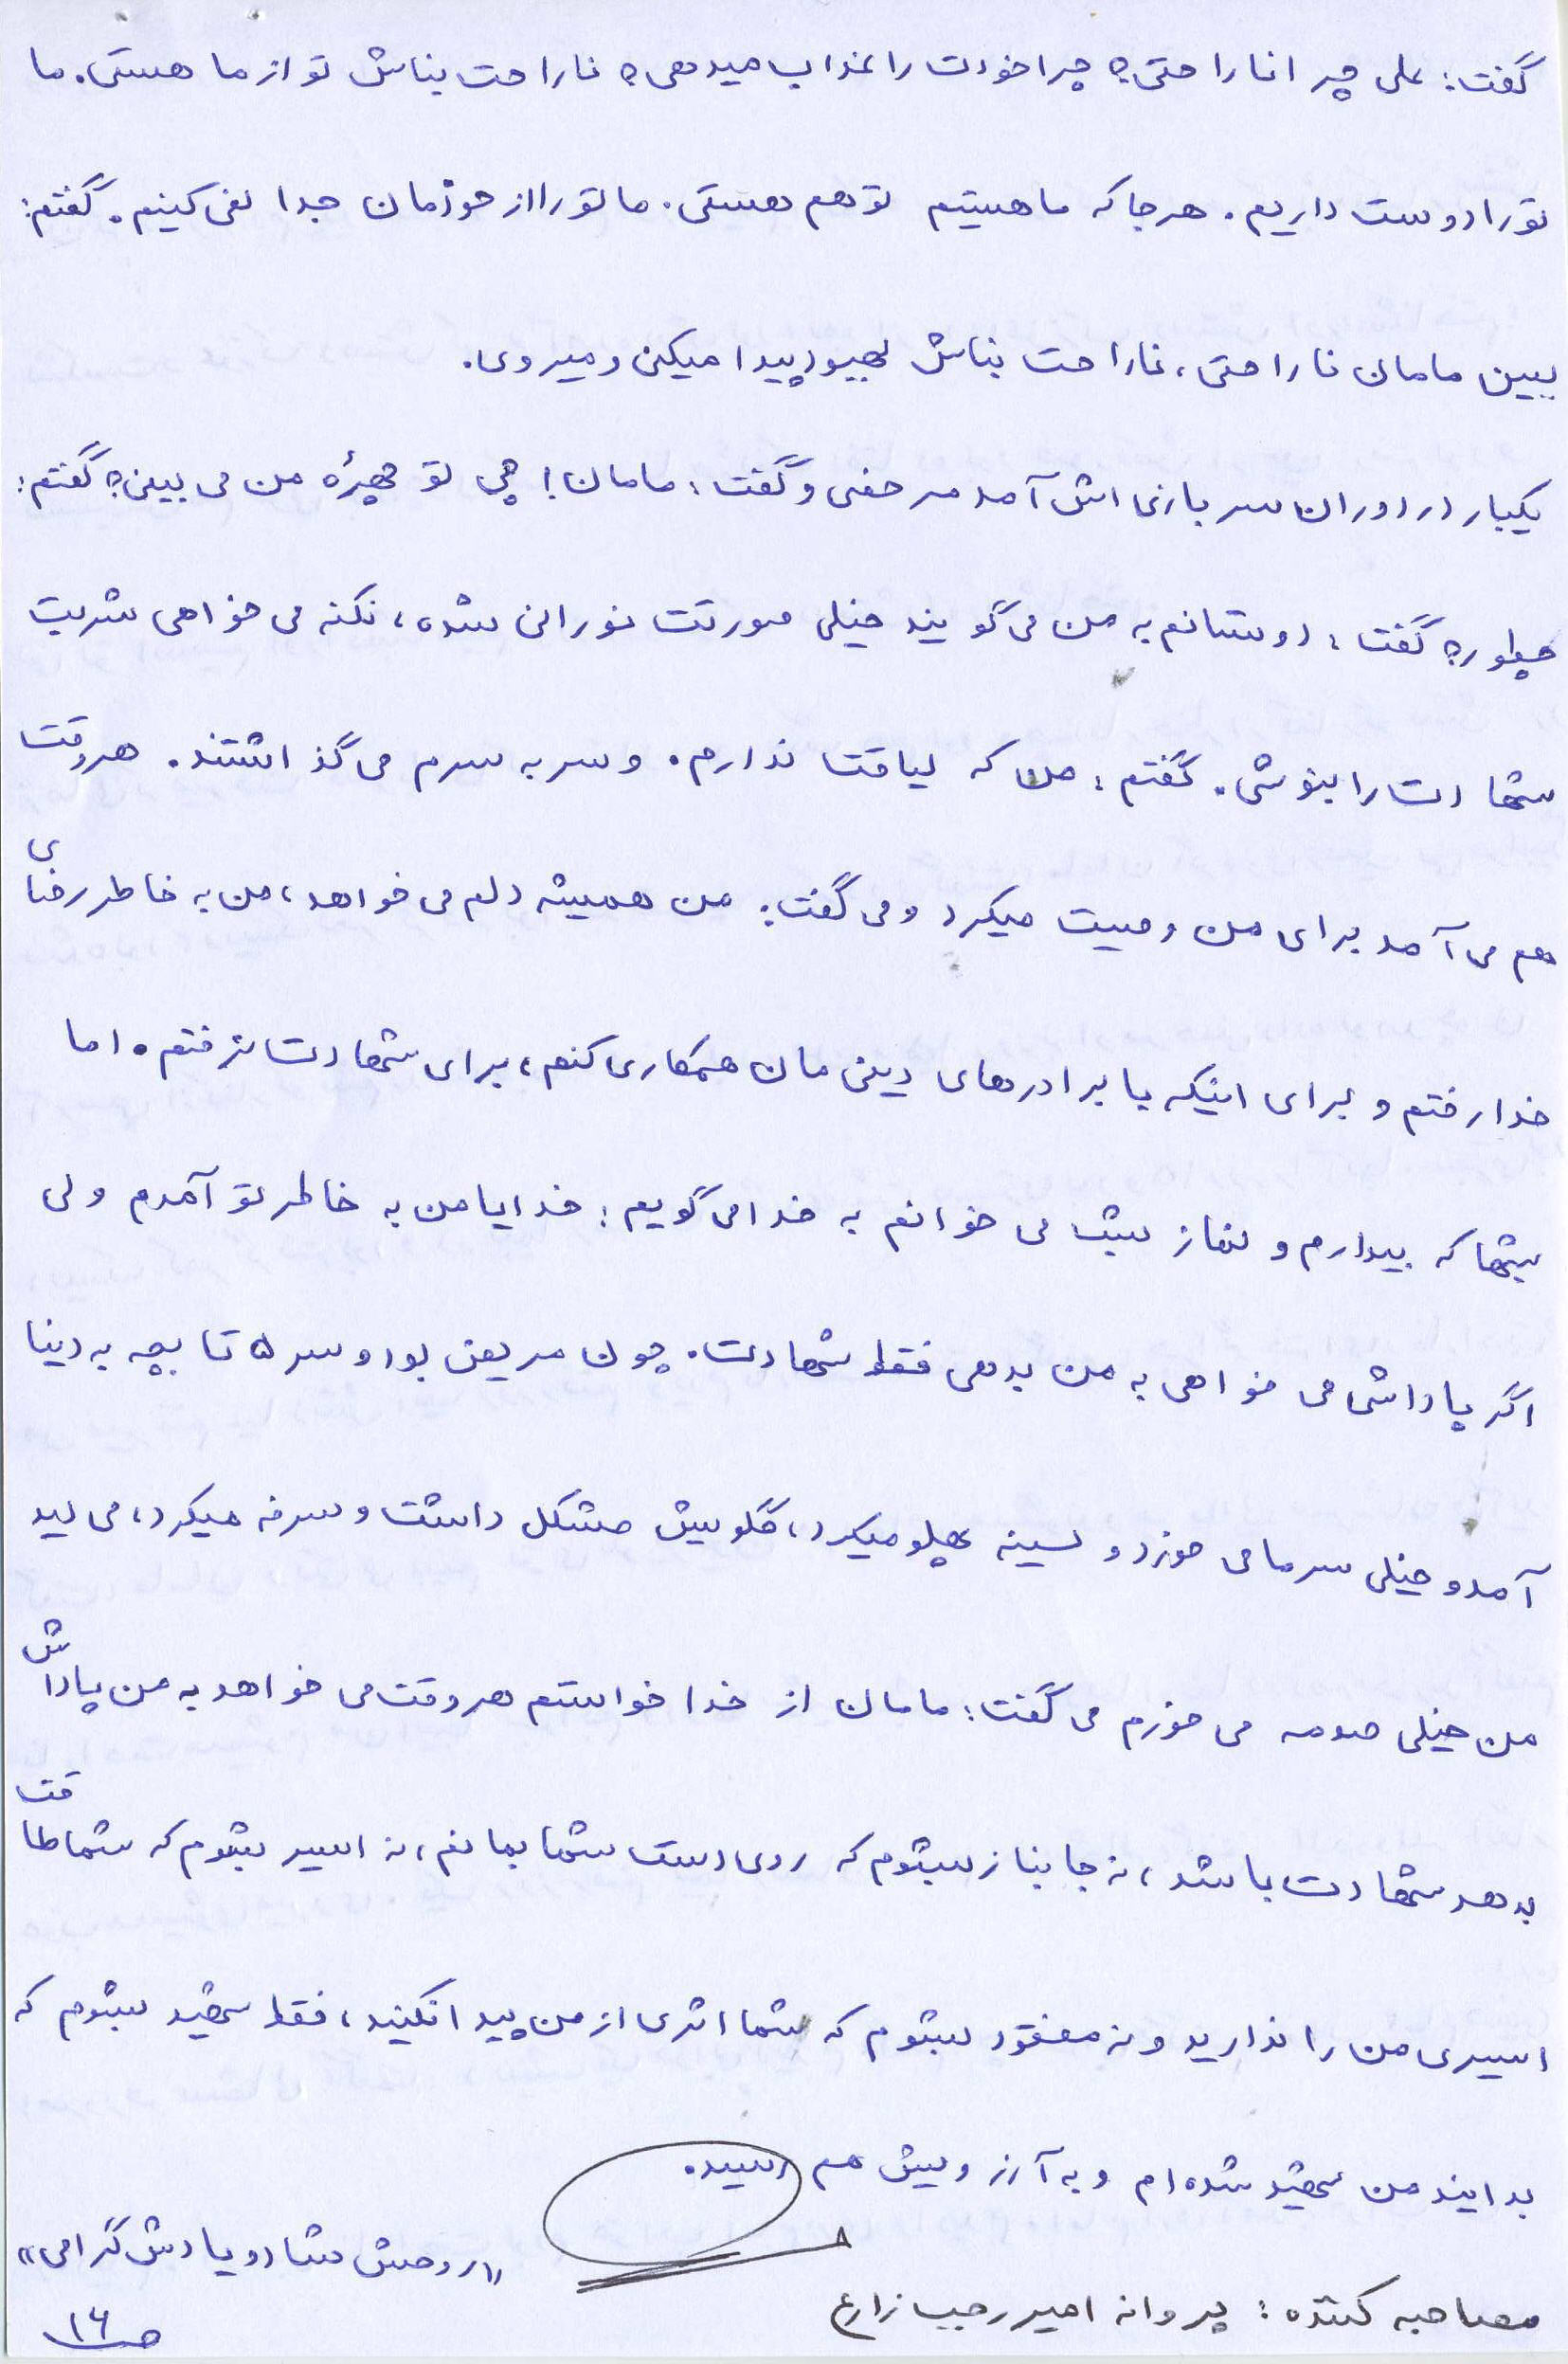 گفت: علی چرا ناراحتی؟ چرا خودت را عذاب میدهی؟ ناراحت نباش تو از ما هستی. ما
تو را دوست داریم. هر جا که ما هستیم تو هم هستی. ما تو را از خودمان جدا نمی کنیم. گفتم:
ببین مامان ناراحتی، ناراحت نباش بهبود پیدا میکنی و میروی.
یکبار در دوران سربازی اش آمد مرخصی و گفت: مامان! چی تو چهرهٔ من می بینی؟ گفتم:
چطور؟ گفت: دوستانم به من می گویند خیلی صورتت نورانی شده، نکنه می خواهی شربت
شهادت را بنوشی. گفتم: من که لیاقت ندارم. و سر به سرم می گذاشتند. هر وقت
هم می آمد برای من وصیت میکرد و می گفت: من همیشه دلم می خواهد، من به خاطر رضای
خدا رفتم و برای اینکه با برادرهای دینی مان همکاری کنم، برای شهادت نرفتم. اما
شبها که بیدارم و نماز شب می خوانم به خدا می گویم: خدایا من به خاطر تو آمدم ولی
اگر پاداشی می خواهی به من بدهی فقط شهادت. چون مریض بود و سر ۵ تا بچه به دنیا
آمد و خیلی سرما می خورد و سینه پهلو میکرد، گلویش مشکل داشت و سرفه میکرد، می دید
من خیلی صدمه می خورم می گفت: مامان از خدا خواستم هر وقت می خواهد به من پاداش
بدهد شهادت باشد، نه جانباز بشوم که روی دست شما بمانم، نه اسیر بشوم که شما طاقت
اسیری من را ندارید و نه مفقود بشوم که شما اثری از من پیدا نکنید، فقط شهید بشوم که
بدانید من شهید شده ام و به آرزویش هم رسید.
«روحش شاد و یادش گرامی»
مصاحبه کننده: پروانه امیر رجب زارع
ص ۱۶